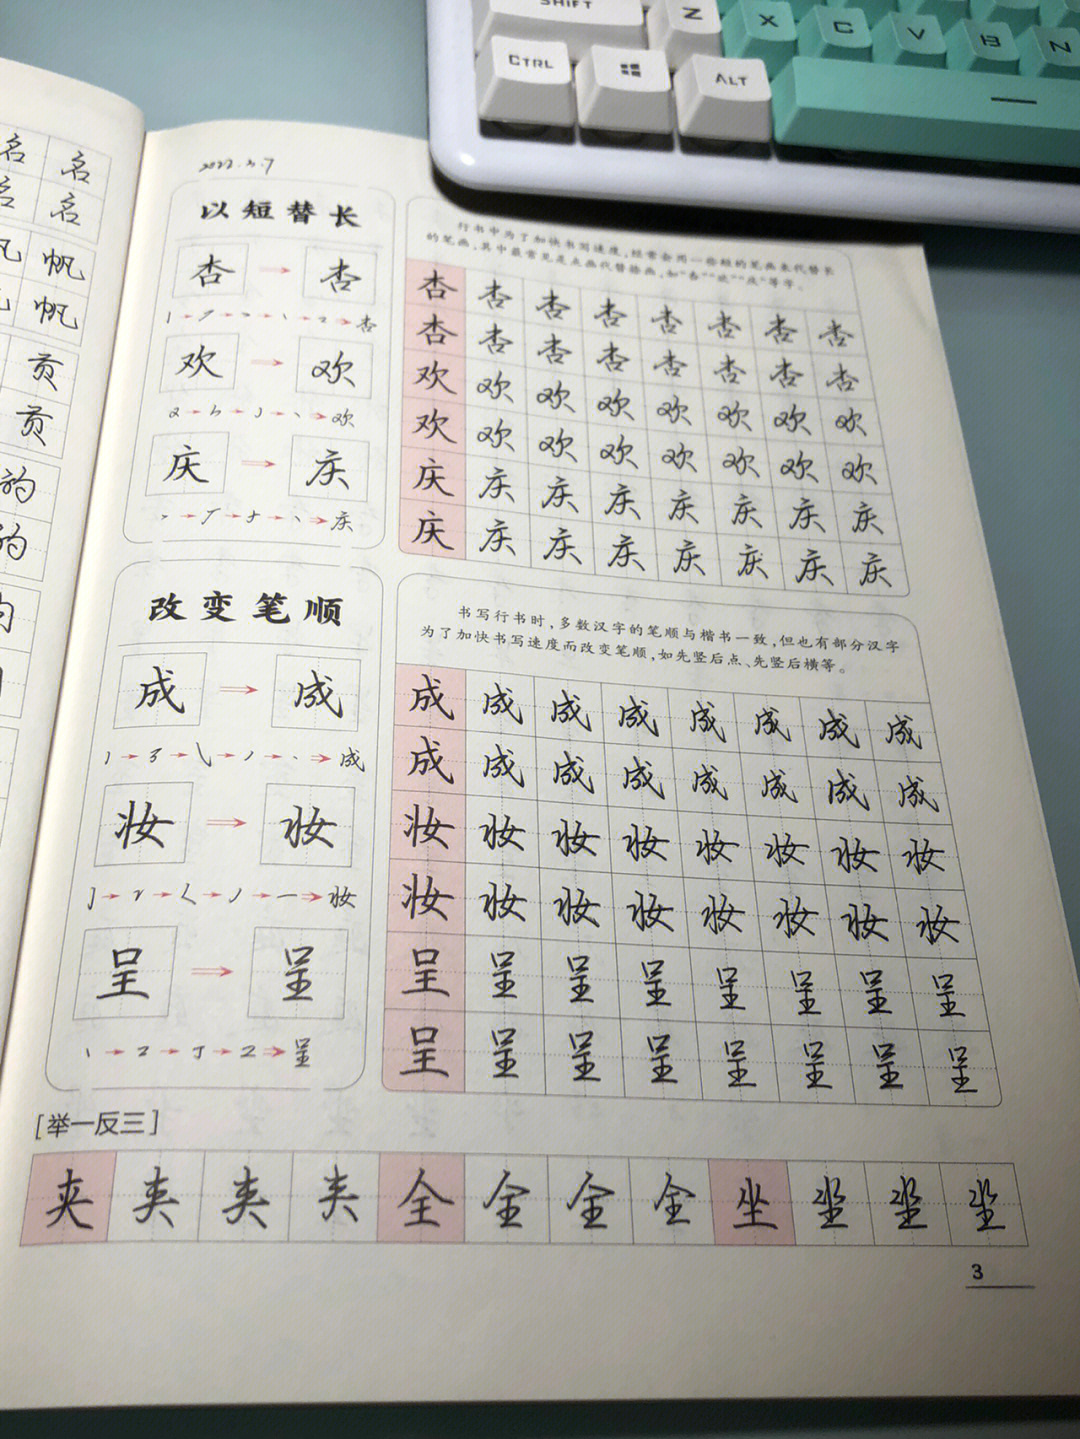 SHIFT
Z X C V B N
CTRL ALT
名 名
名 名
帆 帆
帆
贡
贡
的
的
2022.3.7
以短替长
杏 杏
杏
欢 欢
欢
庆 庆
庆
行书中为了加快书写速度,经常会用一些短的笔画来代替长
的笔画,其中最常见是点画代替捺画,如“杏”“欢”“庆”等字。
杏 杏 杏 杏 杏 杏 杏 杏
杏 杏 杏 杏 杏 杏 杏 杏
欢 欢 欢 欢 欢 欢 欢 欢
欢 欢 欢 欢 欢 欢 欢 欢
庆 庆 庆 庆 庆 庆 庆 庆
庆 庆 庆 庆 庆 庆 庆 庆
改变笔顺
成 成
成
妆 妆
妆
呈 呈
呈
书写行书时,多数汉字的笔顺与楷书一致,但也有部分汉字
为了加快书写速度而改变笔顺,如先竖后点、先竖后横等。
成 成 成 成 成 成 成 成
成 成 成 成 成 成 成 成
妆 妆 妆 妆 妆 妆 妆 妆
妆 妆 妆 妆 妆 妆 妆 妆
呈 呈 呈 呈 呈 呈 呈 呈
呈 呈 呈 呈 呈 呈 呈 呈
[举一反三]
夹 夹 夹 夹 全 全 全 全 坐 坐 坐 坐
3